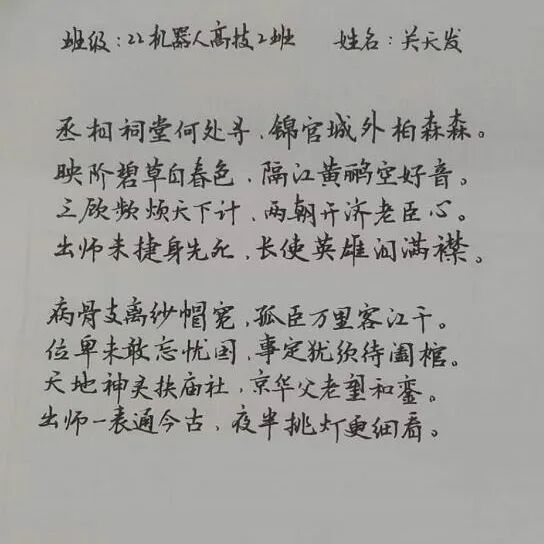 班级：22机器人高技2班 姓名：关天发
丞相祠堂何处寻，锦官城外柏森森。
映阶碧草自春色，隔江黄鹂空好音。
三顾频烦天下计，两朝开济老臣心。
出师未捷身先死，长使英雄泪满襟。
病骨支离纱帽宽，孤臣万里客江干。
位卑未敢忘忧国，事定犹须待阖棺。
天地神灵扶庙社，京华父老望和銮。
出师一表通今古，夜半挑灯更细看。